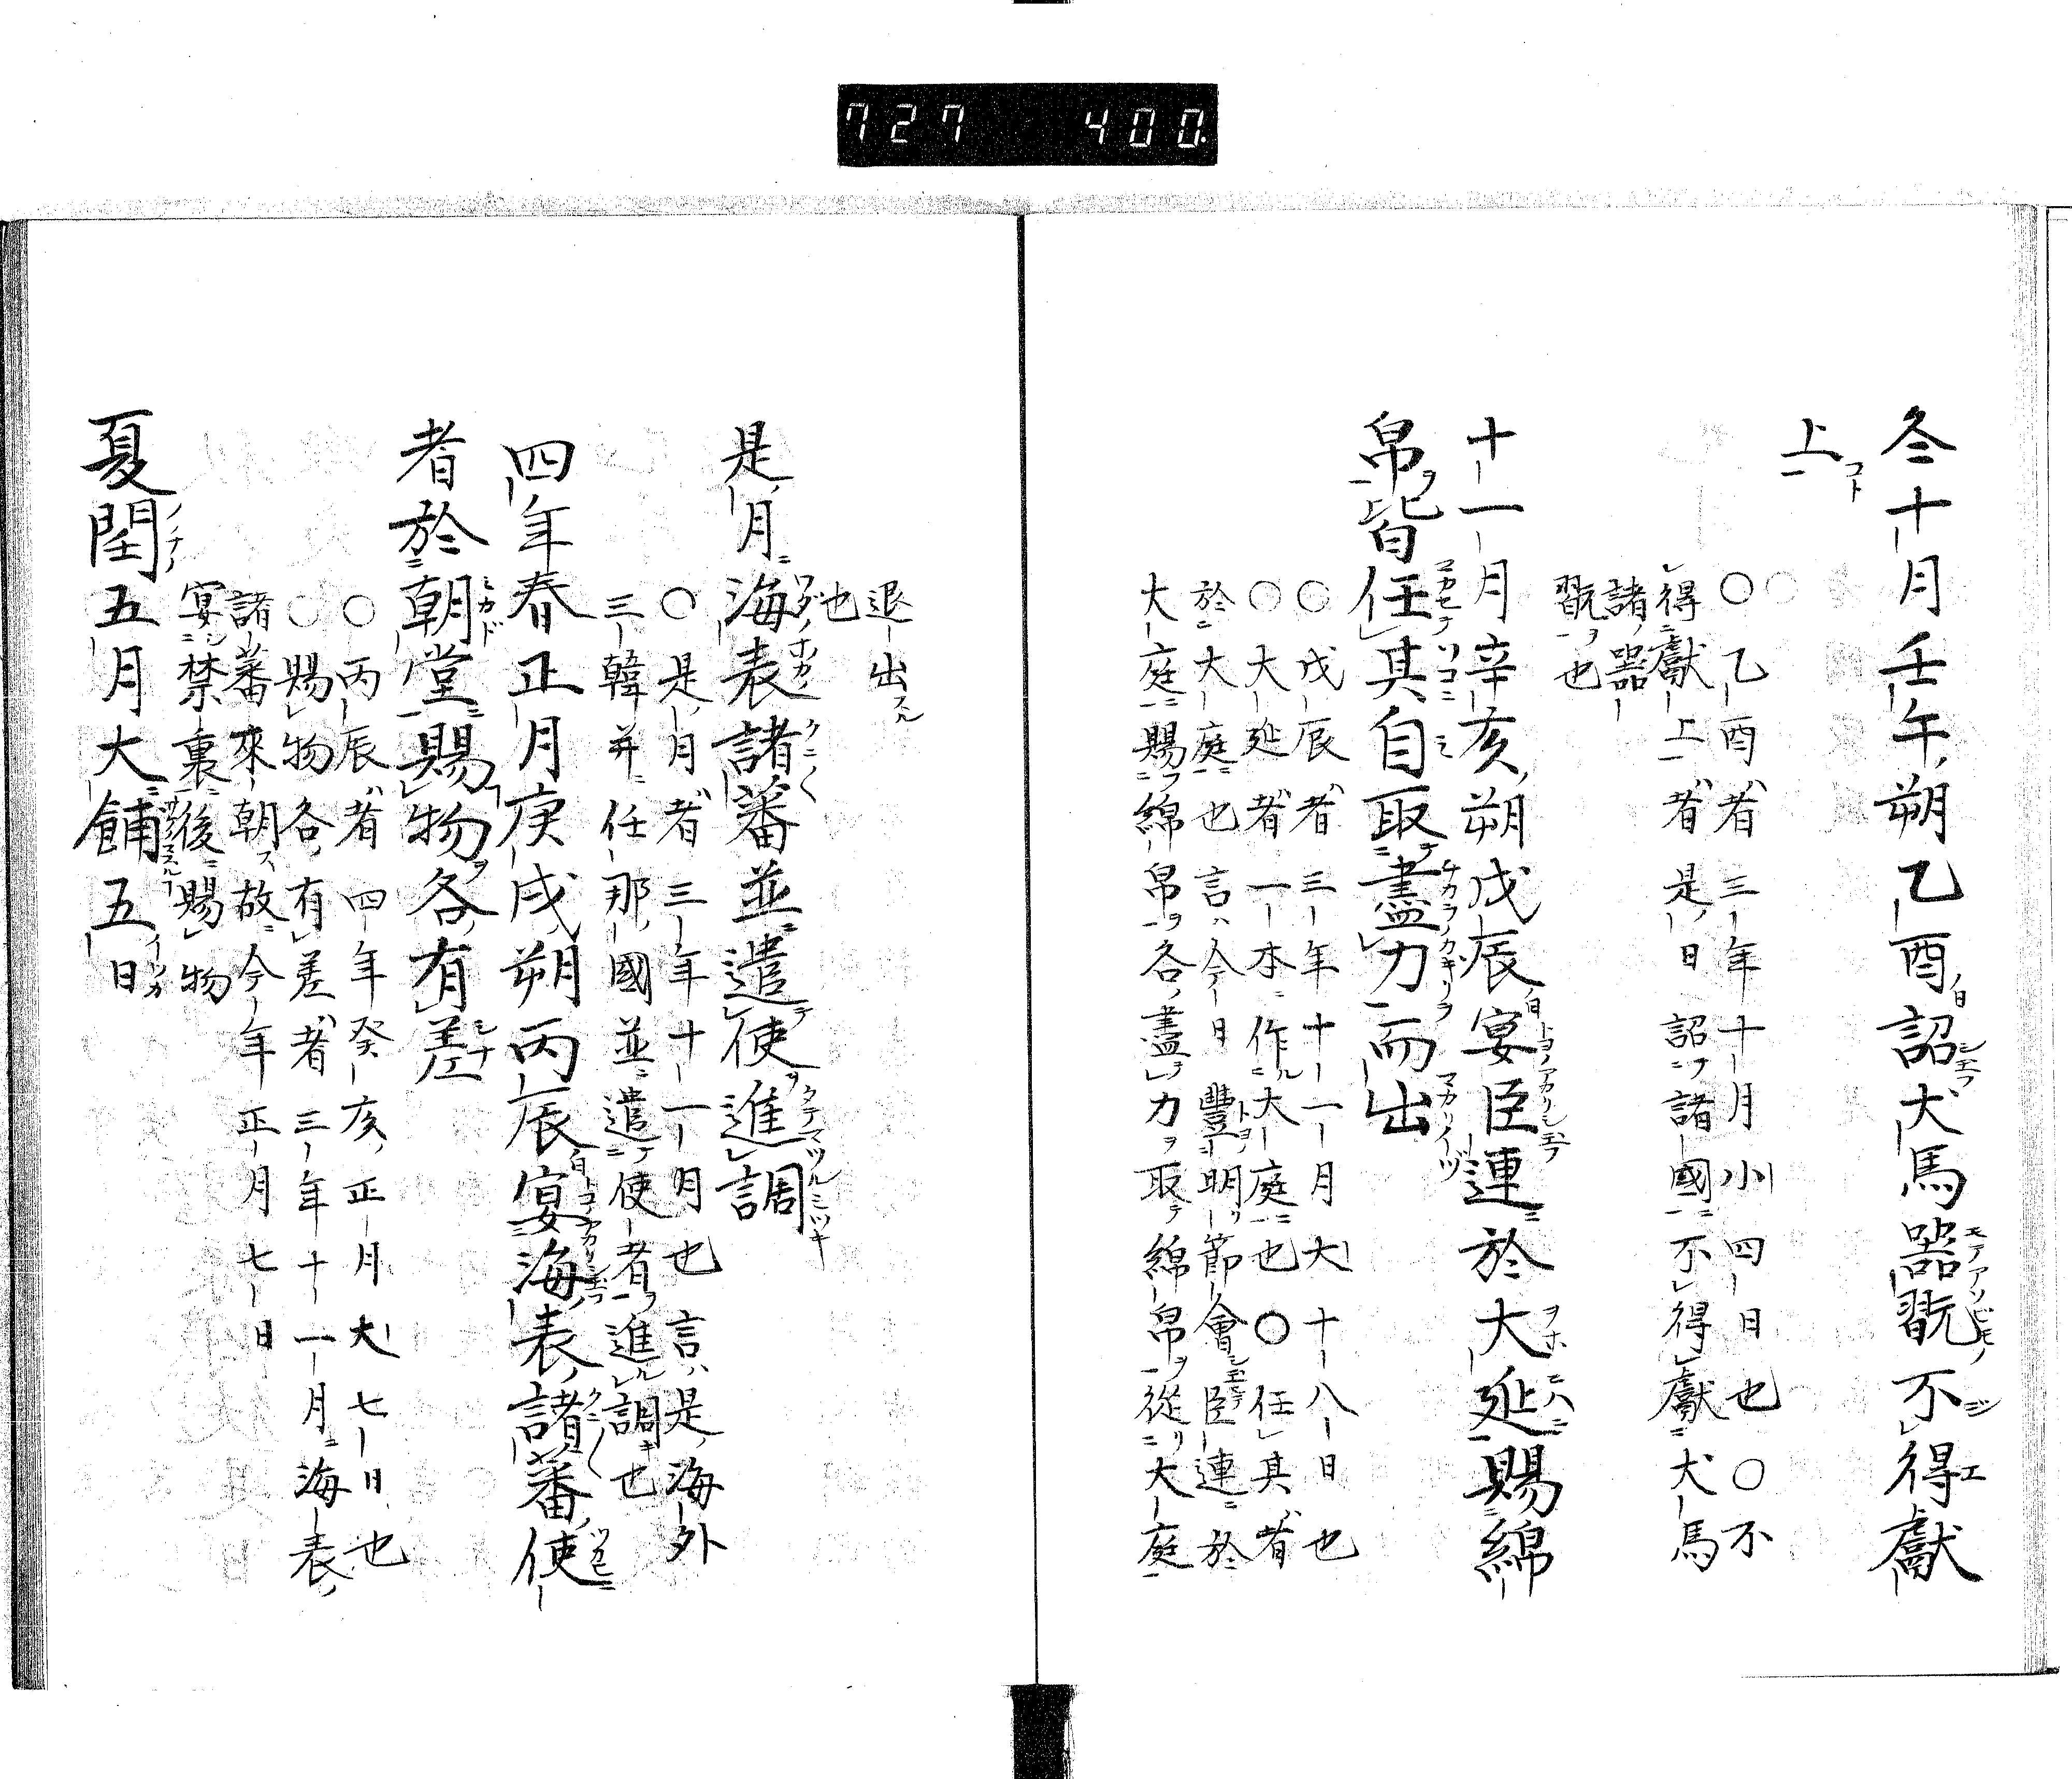 727 400.
冬十月壬午朔乙酉詔犬馬器翫不得獻
上
○乙酉者三年十月小四日也○不
得獻上者是日詔諸國不得獻犬馬
諸器
翫也
十一月辛亥朔戊辰宴臣連於大延賜綿
帛皆任其自取盡力而出
○戊辰者三年十一月大十八日也
○大延者一本作大庭也○任其者
於大庭也言今日豐明節會臣連於
大庭賜綿帛各盡力取綿帛從大庭
退出
也
是月海表諸蕃並遣使進調
○是月者三年十一月也言是海外
三韓并任那國並遣使者進調也
四年春正月庚戌朔丙辰宴海表諸蕃使
者於朝堂賜物各有差
○丙辰者四年癸亥正月大七日也
○賜物各有差者三年十一月海表
諸蕃來朝故今年正月七日
宴禁裏後賜物
夏閏五月大餔五日